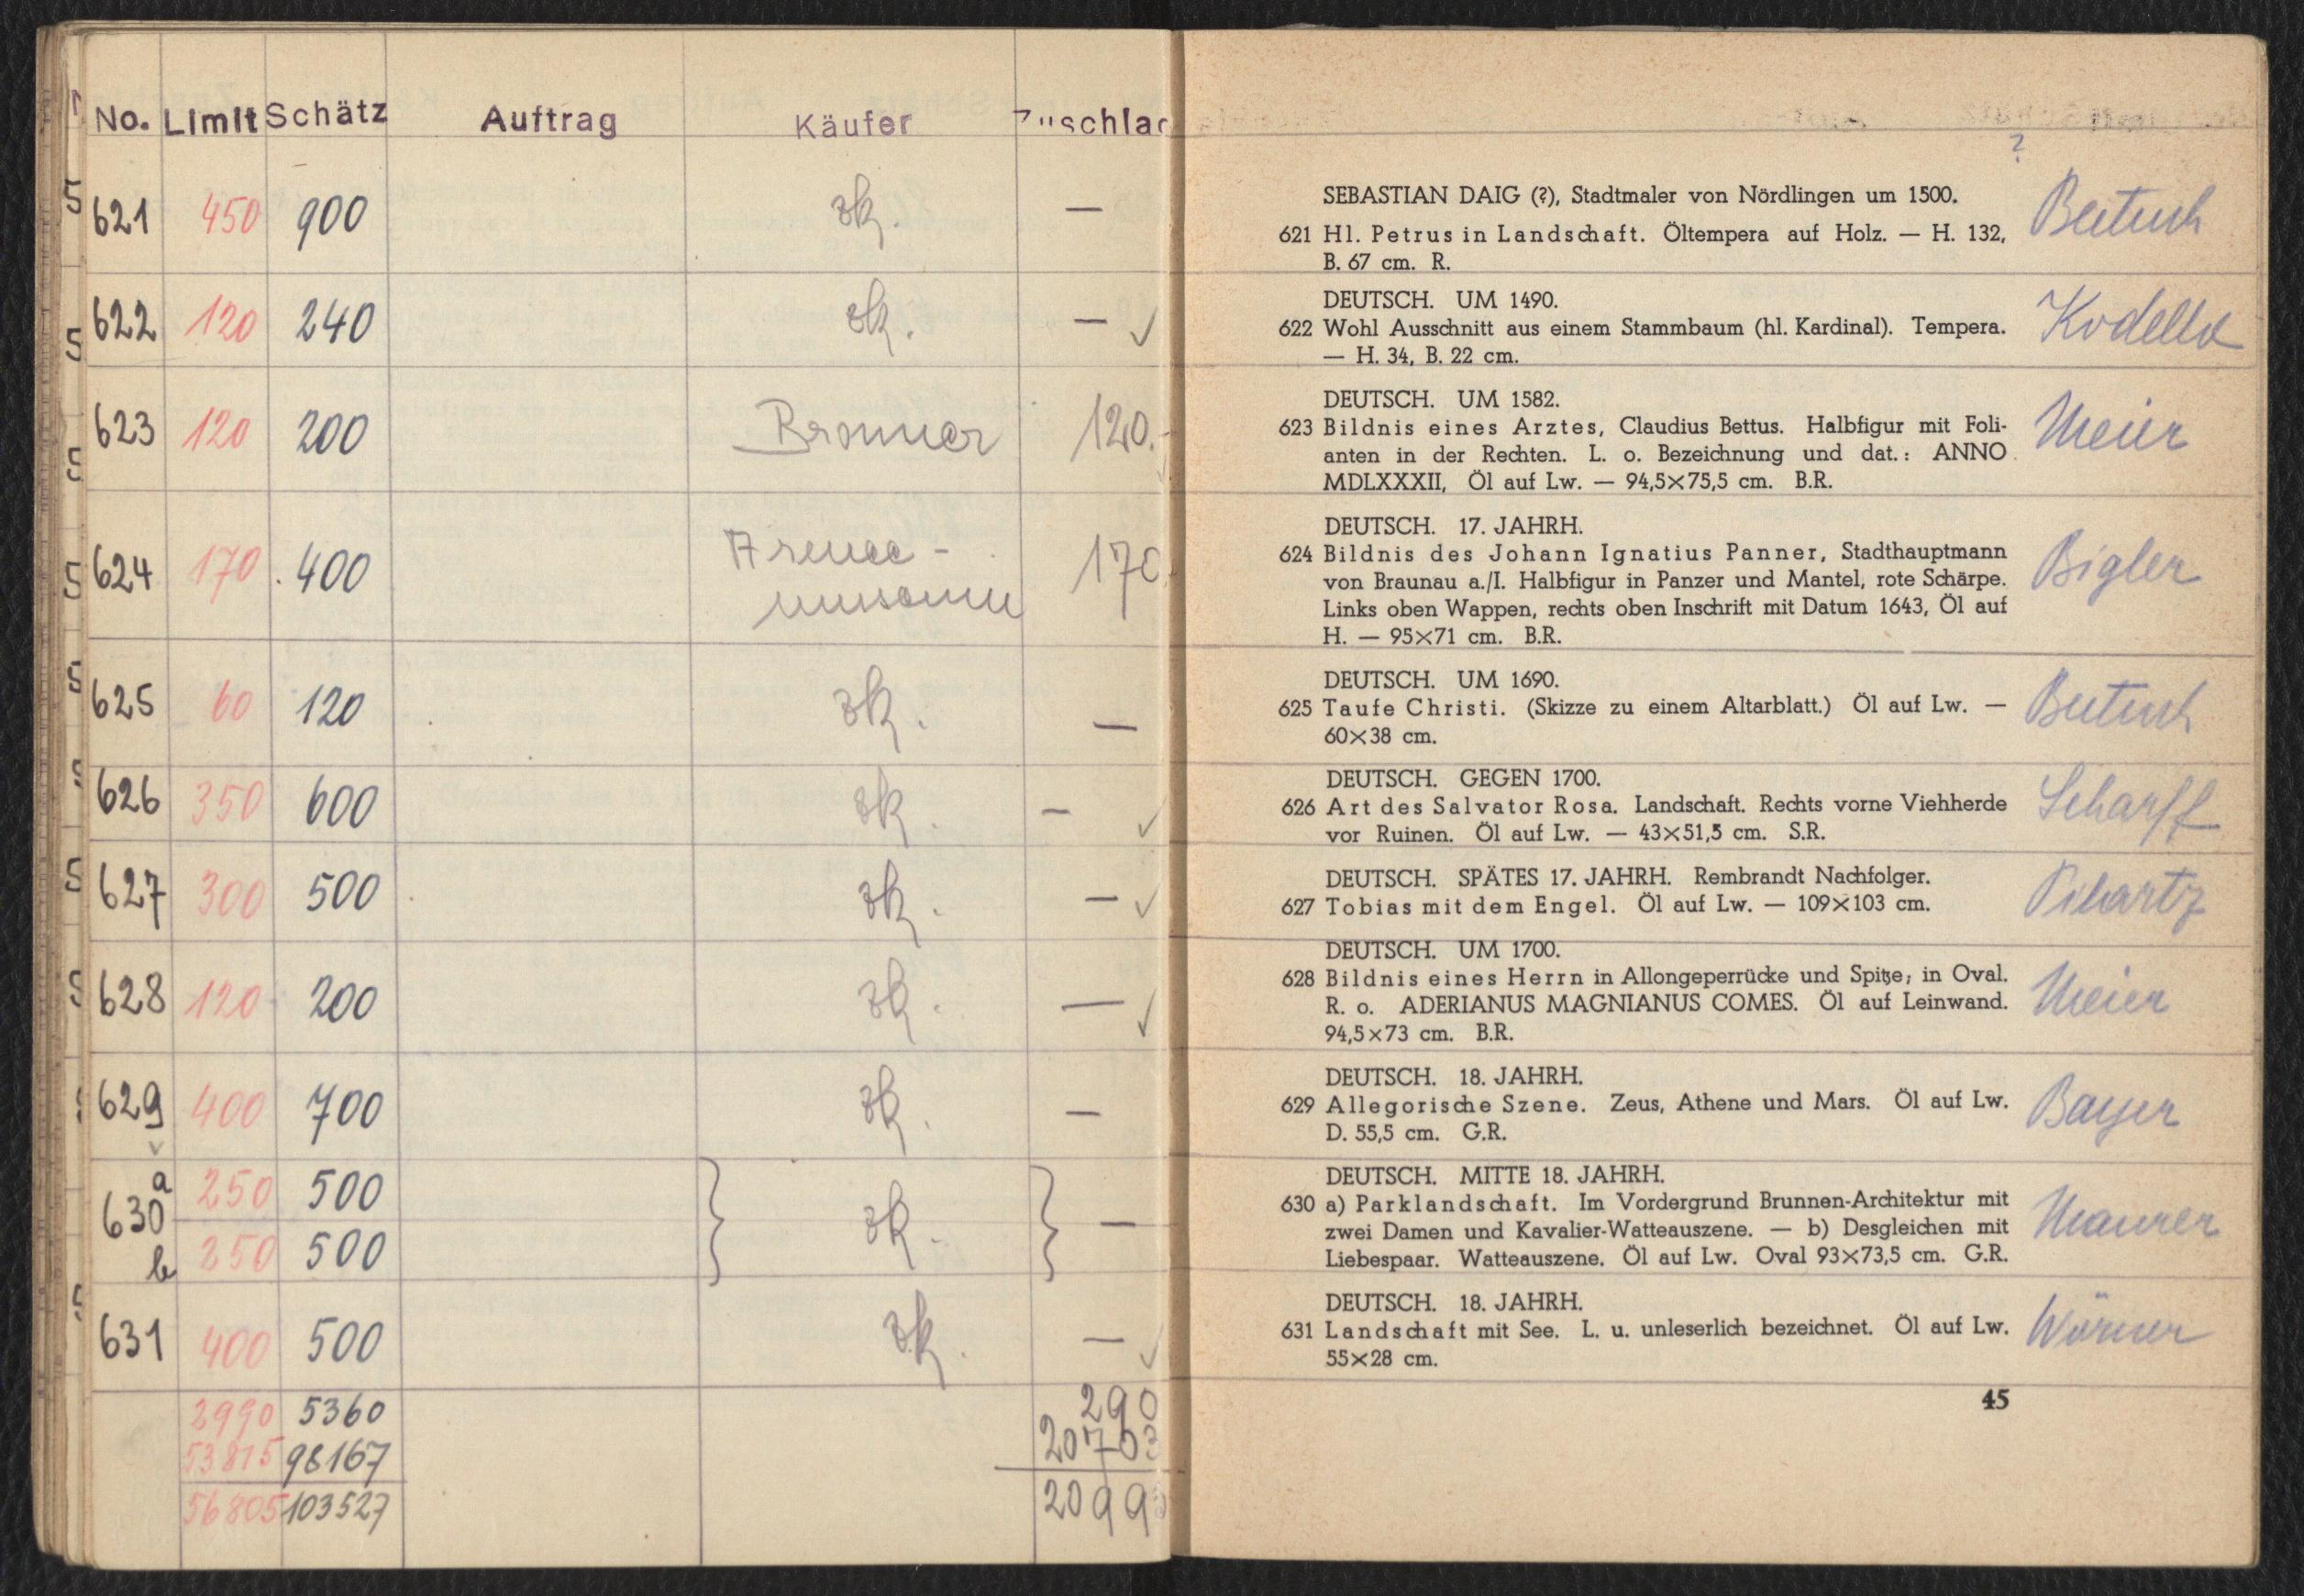 No. Limit Schätz Auftrag Käufer Zuschlag
621 450 900 zk. —
622 120 240 zk. — ✓
623 120 200 Bronner 120.-
624 170 400 170
625 60 120 zk. —
626 350 600 zk. — ✓
627 300 500 zk. — ✓
628 120 200 zk. — ✓
629 400 700 zk. —
630 a 250 500 zk. —
b 250 500
631 400 500 zk. — ✓
2990 5360 290
53815 98167 20703
56805 103527 2099
?
SEBASTIAN DAIG (?), Stadtmaler von Nördlingen um 1500.
621 Hl. Petrus in Landschaft. Öltempera auf Holz. — H. 132,
B. 67 cm. R.
DEUTSCH. UM 1490.
622 Wohl Ausschnitt aus einem Stammbaum (hl. Kardinal). Tempera. Kodella
— H. 34, B. 22 cm.
DEUTSCH. UM 1582.
623 Bildnis eines Arztes, Claudius Bettus. Halbfigur mit Foli- Meier
anten in der Rechten. L. o. Bezeichnung und dat.: ANNO
MDLXXXII, Öl auf Lw. — 94,5×75,5 cm. B.R.
DEUTSCH. 17. JAHRH.
624 Bildnis des Johann Ignatius Panner, Stadthauptmann Bigler
von Braunau a./I. Halbfigur in Panzer und Mantel, rote Schärpe.
Links oben Wappen, rechts oben Inschrift mit Datum 1643, Öl auf
H. — 95×71 cm. B.R.
DEUTSCH. UM 1690.
625 Taufe Christi. (Skizze zu einem Altarblatt.) Öl auf Lw. —
60×38 cm.
DEUTSCH. GEGEN 1700.
626 Art des Salvator Rosa. Landschaft. Rechts vorne Viehherde Scharff
vor Ruinen. Öl auf Lw. — 43×51,5 cm. S.R.
DEUTSCH. SPÄTES 17. JAHRH. Rembrandt Nachfolger.
627 Tobias mit dem Engel. Öl auf Lw. — 109×103 cm. Pilartz
DEUTSCH. UM 1700.
628 Bildnis eines Herrn in Allongeperrücke und Spitze; in Oval. Meier
R. o. ADERIANUS MAGNIANUS COMES. Öl auf Leinwand.
94,5×73 cm. B.R.
DEUTSCH. 18. JAHRH.
629 Allegorische Szene. Zeus, Athene und Mars. Öl auf Lw. Bayer
D. 55,5 cm. G.R.
DEUTSCH. MITTE 18. JAHRH.
630 a) Parklandschaft. Im Vordergrund Brunnen-Architektur mit Maurer
zwei Damen und Kavalier-Watteauszene. — b) Desgleichen mit
Liebespaar. Watteauszene. Öl auf Lw. Oval 93×73,5 cm. G.R.
DEUTSCH. 18. JAHRH.
631 Landschaft mit See. L. u. unleserlich bezeichnet. Öl auf Lw. Wörner
55×28 cm.
45